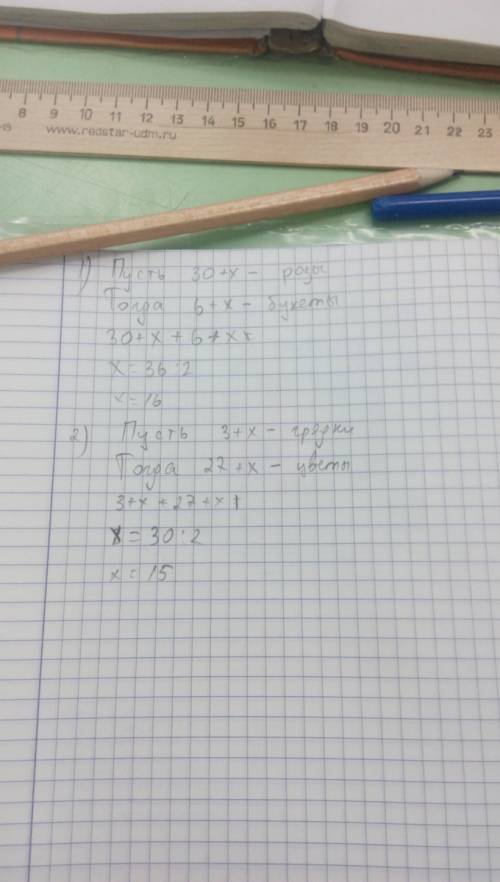 8 9 10 11 12 13 14 15 16 17 18 19 20 21 22 23
www.redstar-udm.ru
1) Пусть 30+x - розы
Тогда 6+x - букеты
30+x+6+x
x=36:2
x=16
2) Пусть 3+x - грядки
Тогда 27+x - цветы
3+x+27+x
x=30:2
x=15